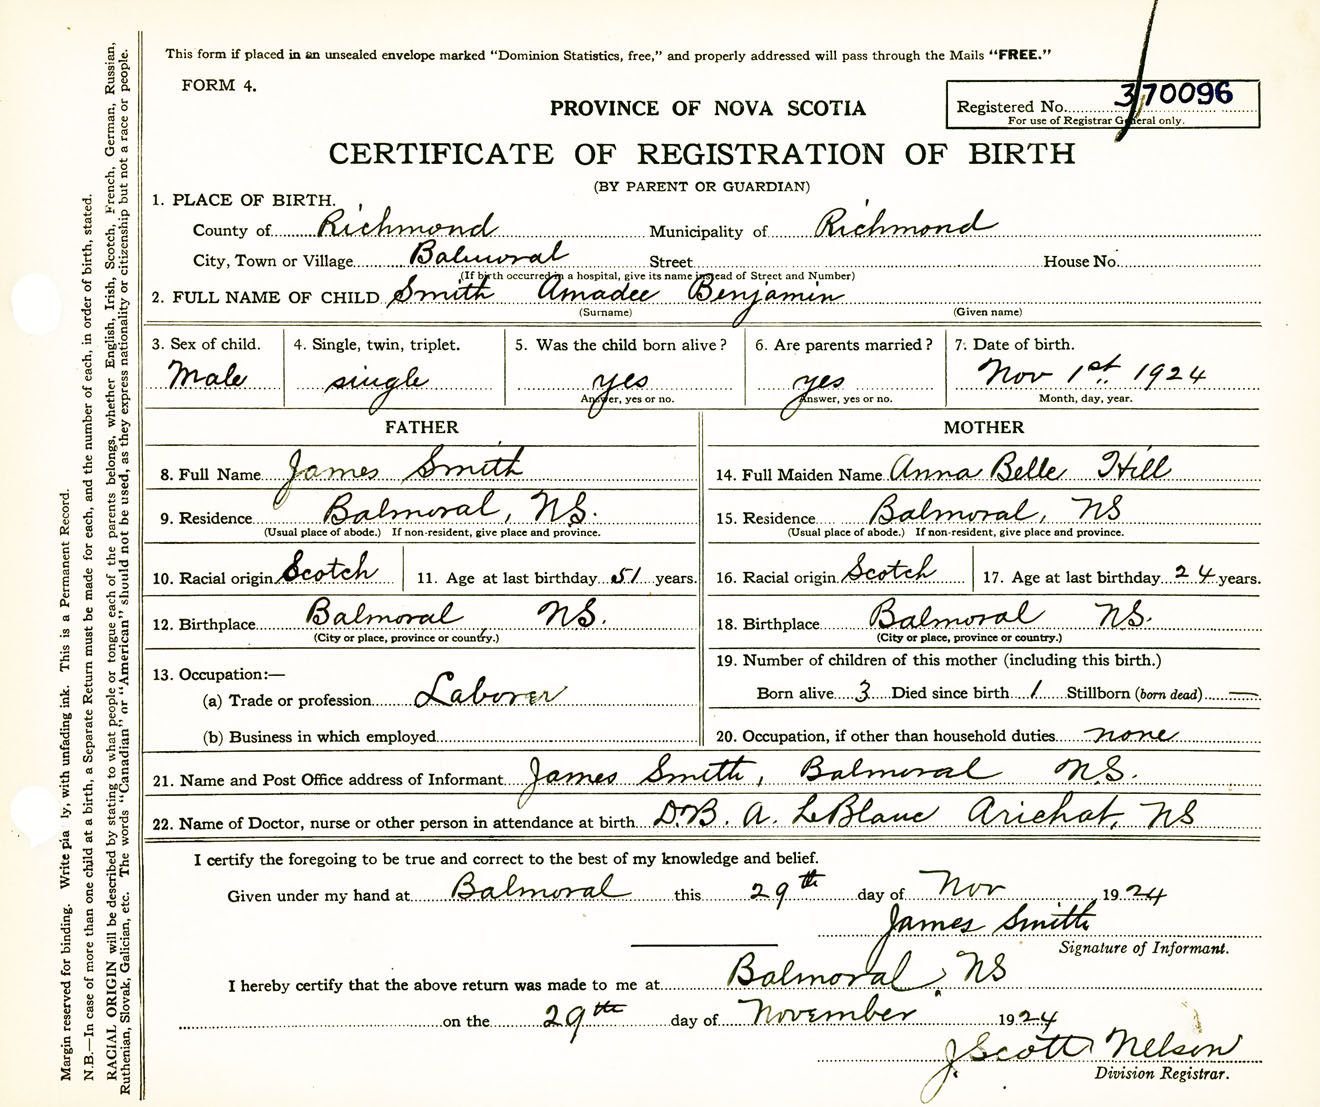 This form if placed in an unsealed envelope marked “Dominion Statistics, free,” and properly addressed will pass through the Mails “FREE.”
FORM 4.
Registered No. 370096
For use of Registrar General only.
PROVINCE OF NOVA SCOTIA
CERTIFICATE OF REGISTRATION OF BIRTH
(BY PARENT OR GUARDIAN)
1. PLACE OF BIRTH.
County of Richmond Municipality of Richmond
City, Town or Village Balmoral Street House No.
(If birth occurred in a hospital, give its name instead of Street and Number)
2. FULL NAME OF CHILD Smith Amadee Benjamin
(Surname) (Given name)
3. Sex of child. 4. Single, twin, triplet. 5. Was the child born alive? 6. Are parents married? 7. Date of birth.
Male single yes yes Nov 1st 1924
Answer, yes or no. Answer, yes or no. Month, day, year.
FATHER MOTHER
8. Full Name James Smith 14. Full Maiden Name Anna Belle Hill
9. Residence Balmoral, NS. 15. Residence Balmoral, NS
(Usual place of abode.) If non-resident, give place and province. (Usual place of abode.) If non-resident, give place and province.
10. Racial origin Scotch 11. Age at last birthday 51 years. 16. Racial origin Scotch 17. Age at last birthday 24 years.
12. Birthplace Balmoral NS. 18. Birthplace Balmoral NS.
(City or place, province or country.) (City or place, province or country.)
13. Occupation:— 19. Number of children of this mother (including this birth.)
(a) Trade or profession Laborer Born alive 3 Died since birth 1 Stillborn (born dead) —
(b) Business in which employed 20. Occupation, if other than household duties none
21. Name and Post Office address of Informant James Smith, Balmoral N.S.
22. Name of Doctor, nurse or other person in attendance at birth D.B. A. LeBlanc Arichat, NS
I certify the foregoing to be true and correct to the best of my knowledge and belief.
Given under my hand at Balmoral this 29th day of Nov 1924
James Smith
Signature of Informant.
I hereby certify that the above return was made to me at Balmoral, NS
on the 29th day of November 1924
J. Scott Nelson
Division Registrar.
Margin reserved for binding. Write pla ly, with unfading ink. This is a Permanent Record.
N.B.—In case of more than one child at a birth, a Separate Return must be made for each, and the number of each, in order of birth, stated.
RACIAL ORIGIN will be described by stating to what people or tongue each of the parents belongs, whether English, Irish, Scotch, French, German, Russian,
Ruthenian, Slovak, Galician, etc. The words “Canadian” or “American” should not be used, as they express nationality or citizenship but not a race or people.